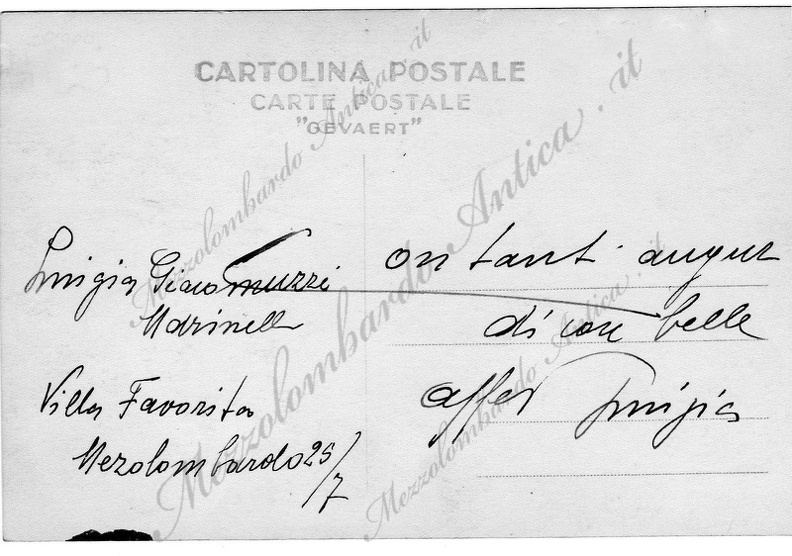 CARTOLINA POSTALE
CARTE POSTALE
"GEVAERT"
Luigia Giacomuzzi
Marinelli
Villa Favorita
Mezolombardo 25/7
on tanti augur
di cose belle
affet Luigia
Mezzolombardo Antica.it
Mezzolombardo Antica.it
Mezzolombardo Antica.it